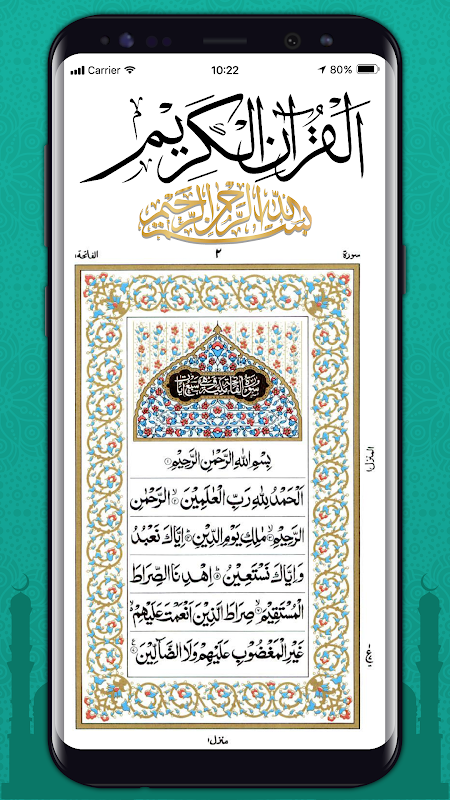 Carrier 10:22 80%
القرآن الكريم
بسم الله الرحمن الرحيم
سورة ٢ الفاتحة١
سورة الفاتحة مكية وهي سبع آيات
بِسْمِ اللهِ الرَّحْمٰنِ الرَّحِيْمِ
اَلْحَمْدُ لِلّٰهِ رَبِّ الْعٰلَمِيْنَ ۙ الرَّحْمٰنِ
الرَّحِيْمِ ۙ مٰلِكِ يَوْمِ الدِّيْنِ ؕ اِيَّاكَ نَعْبُدُ
وَاِيَّاكَ نَسْتَعِيْنُ ؕ اِهْدِنَا الصِّرَاطَ
الْمُسْتَقِيْمَ ۙ صِرَاطَ الَّذِيْنَ اَنْعَمْتَ عَلَيْهِمْ
غَيْرِ الْمَغْضُوْبِ عَلَيْهِمْ وَلَا الضَّآلِّيْنَ
منزل١